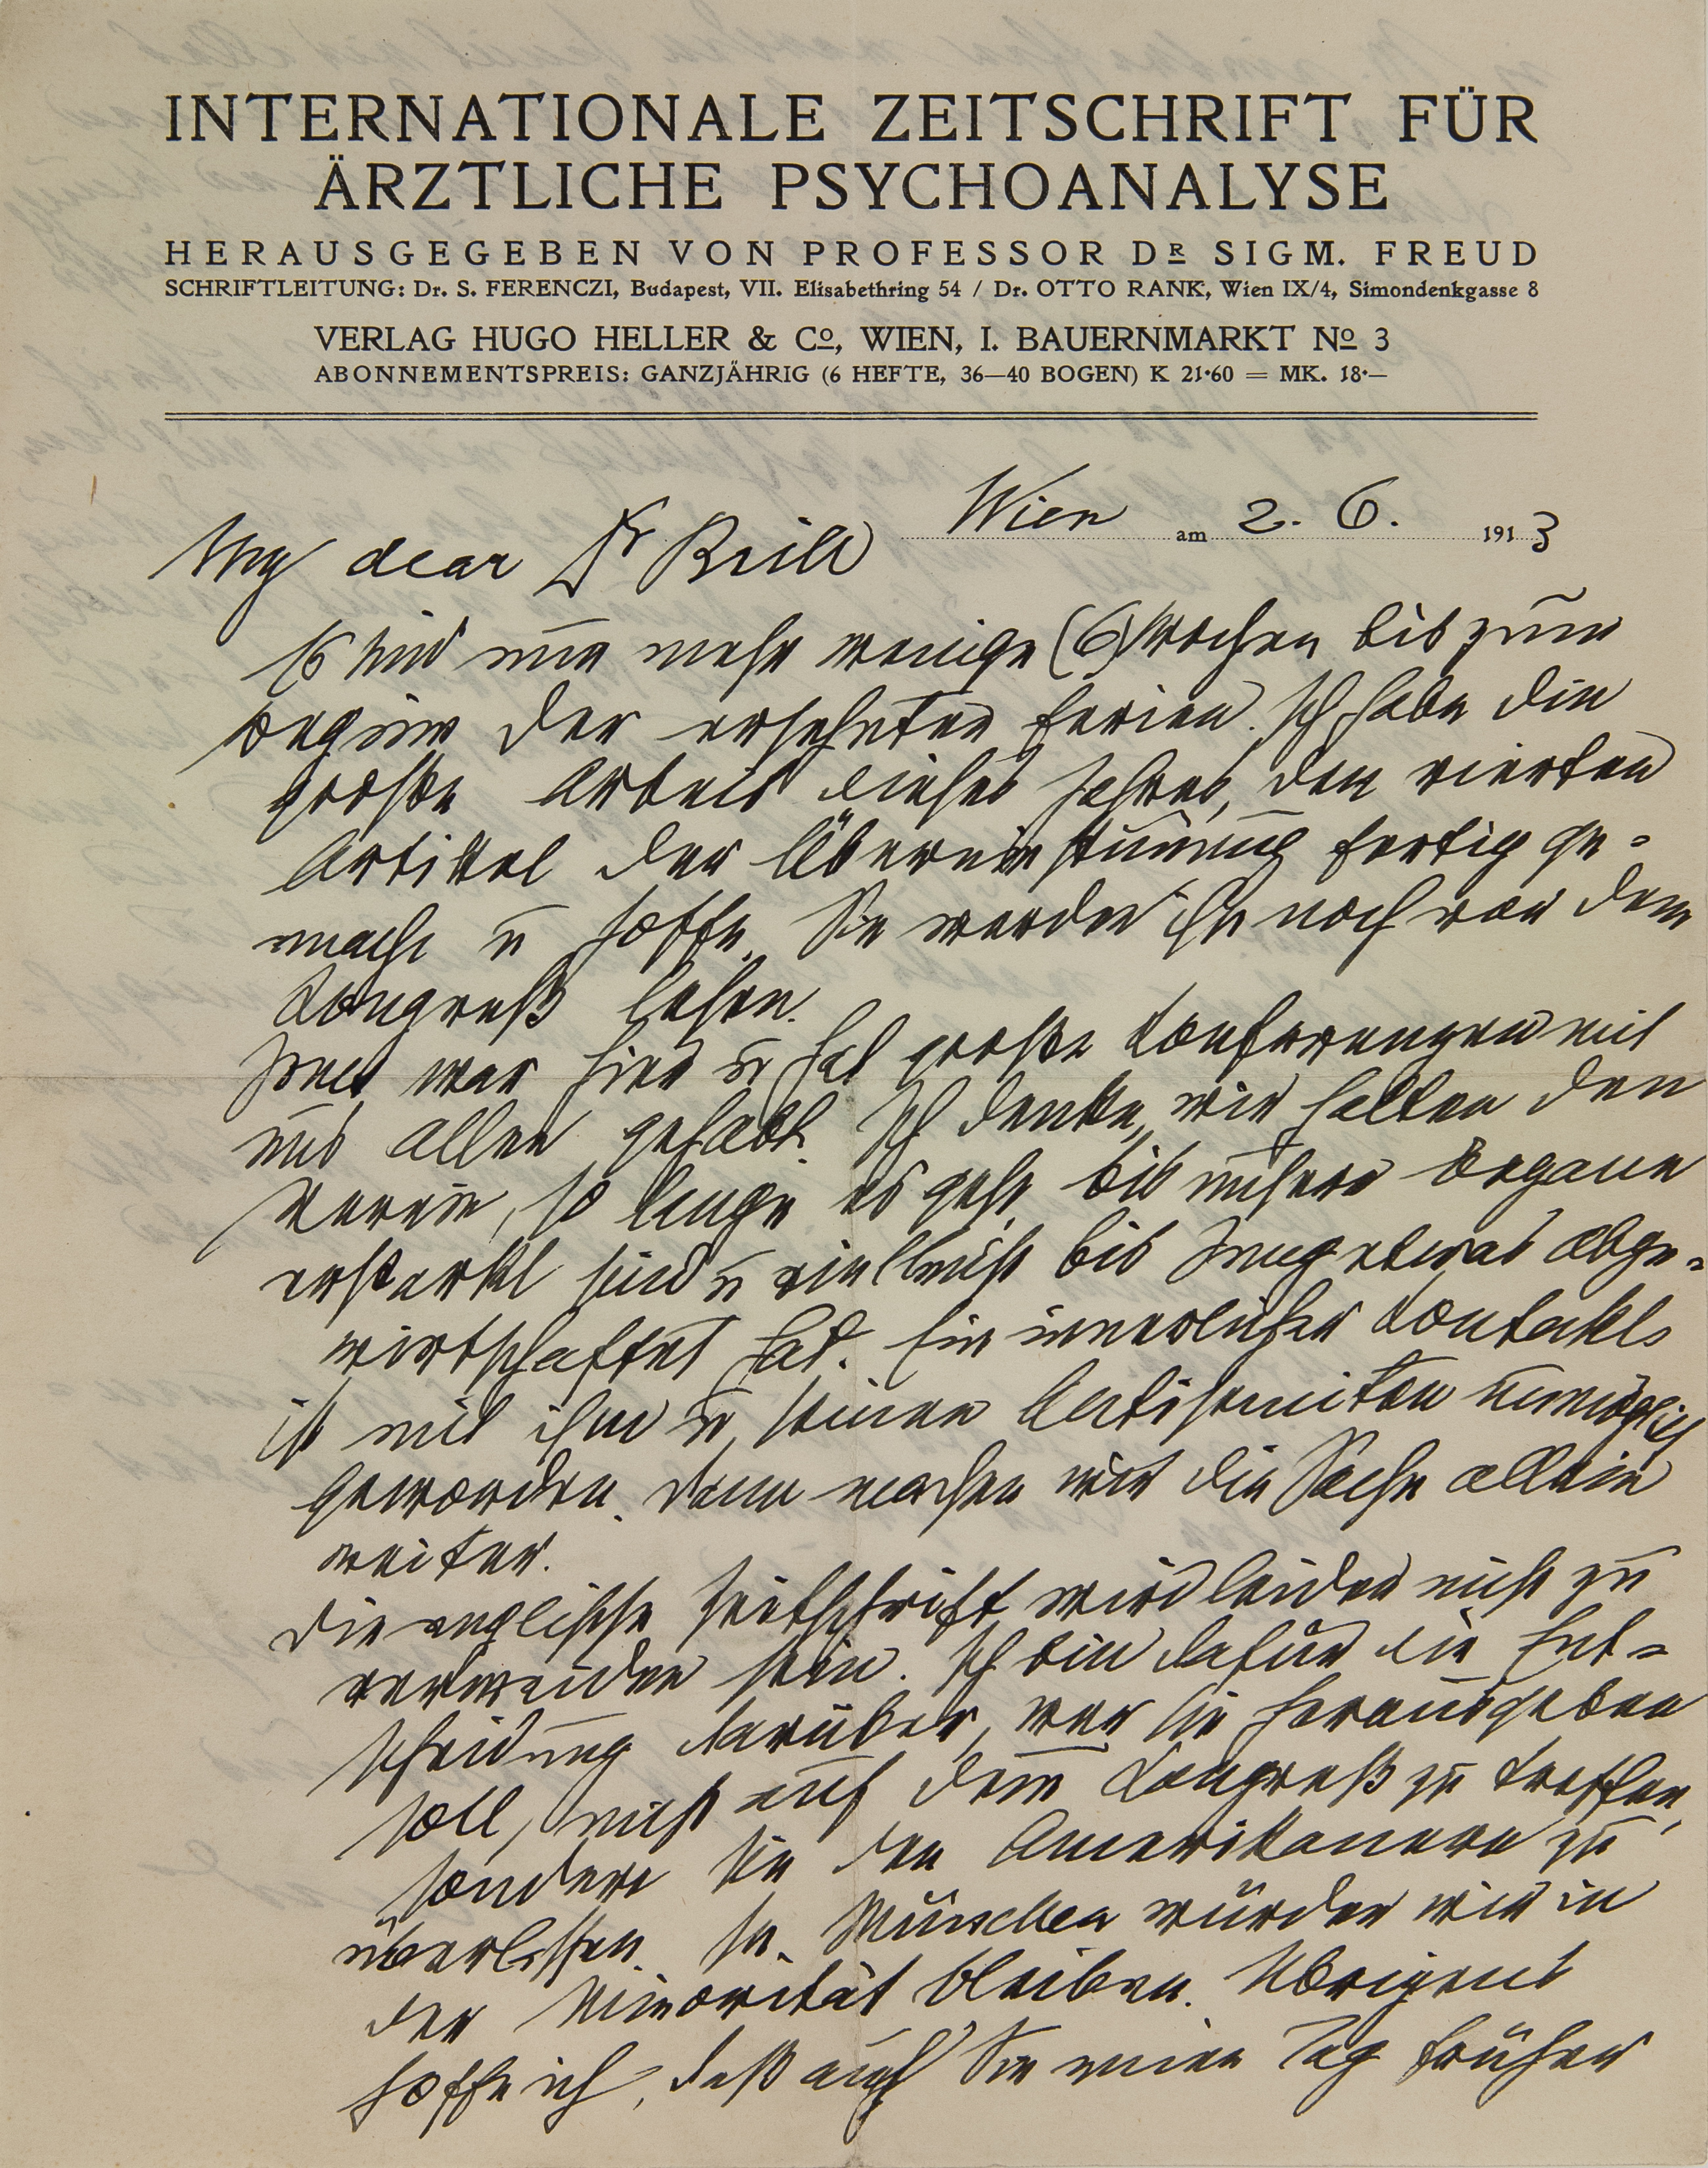 INTERNATIONALE ZEITSCHRIFT FÜR
ÄRZTLICHE PSYCHOANALYSE
HERAUSGEGEBEN VON PROFESSOR DR SIGM. FREUD
SCHRIFTLEITUNG: Dr. S. FERENCZI, Budapest, VII. Elisabethring 54 / Dr. OTTO RANK, Wien IX/4, Simondenkgasse 8
VERLAG HUGO HELLER & Co, WIEN, I. BAUERNMARKT No 3
ABONNEMENTSPREIS: GANZJÄHRIG (6 HEFTE, 36—40 BOGEN) K 21·60 = MK. 18·—
Wien am 2. 6. 1913
My dear Dr Brill
Es sind nur mehr wenige (6) Wochen bis zum
Beginn der ersehnten Ferien. Ich habe die
große Arbeit dieses Jahres, den vierten
Artikel der Übereinstimmung fertig ge-
macht u hoffe, Sie werden ihn noch vor dem
Kongreß lesen.
Jones war hier u hat große Konferenzen mit
uns allen gehabt. Ich denke, wir halten den
Verein, so lange es geht, bis unsere Organe
erstarkt sind u vielleicht bis Jung etwas abge-
wirtschaftet hat. Ein innerlicher Kontakt
ist mit ihm u seinen Antisemiten unmöglich
geworden. Dann machen wir die Sache allein
weiter.
Die englische Zeitschrift wird leider nicht zu
vermeiden sein. Ich bin dafür die Ent-
scheidung darüber, wer sie herausgeben
soll, nicht auf dem Kongreß zu treffen,
sondern sie den Amerikanern zu
überlassen. In München würden wir in
der Minorität bleiben. Übrigens
hoffe ich, daß auch Sie einen Tag früher